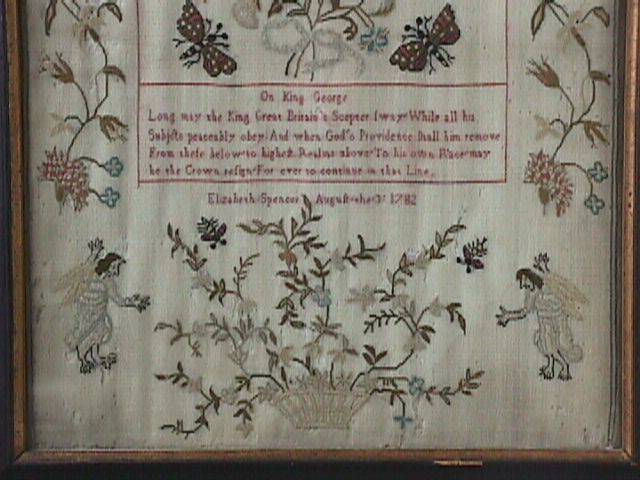 On King George
Long may the King Great Britain's Scepter sway While all his
Subjects peaceably obey And when God's Providence shall him remove
From these below to highest Realms above To his own Race may
he the Crown resign For ever to continue in that Line.
Elizabeth Spencer August the 1782